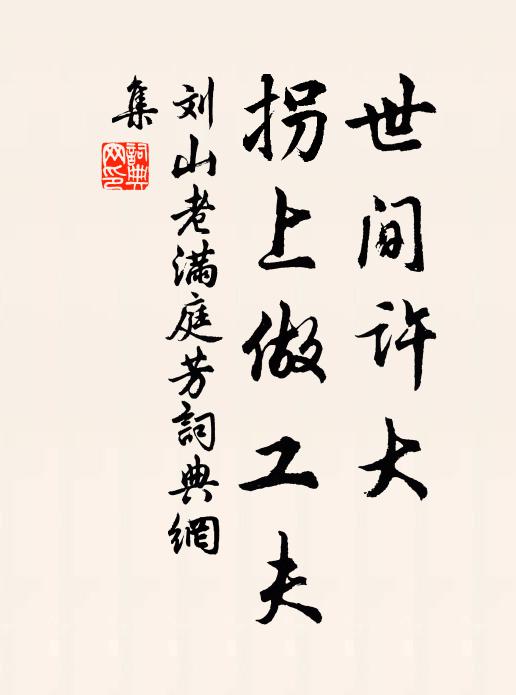 世间许大
拐上做工夫
刘山老满庭芳詞典網
集
詞典
网印